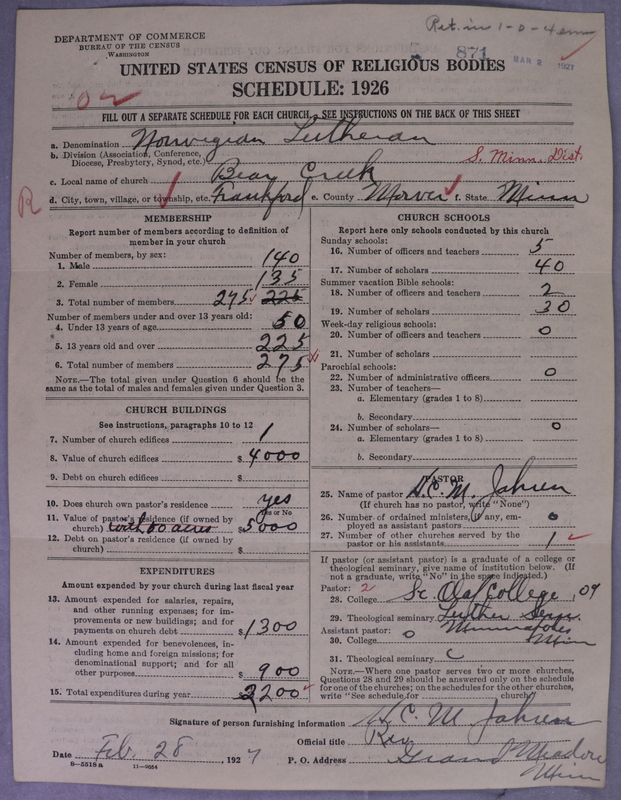 Ret. in 1-0-4 em
DEPARTMENT OF COMMERCE
BUREAU OF THE CENSUS
WASHINGTON
871
MAR 2 1927
UNITED STATES CENSUS OF RELIGIOUS BODIES
SCHEDULE: 1926
FILL OUT A SEPARATE SCHEDULE FOR EACH CHURCH. SEE INSTRUCTIONS ON THE BACK OF THIS SHEET
a. Denomination Norwegian Lutheran
b. Division (Association, Conference, Diocese, Presbytery, Synod, etc.) S. Minn. Dist.
c. Local name of church Bear Creek
R
d. City, town, village, or township, etc. Frankford e. County Mower f. State Minn
MEMBERSHIP
Report number of members according to definition of
member in your church
Number of members, by sex:
1. Male 140
2. Female 135
3. Total number of members 275 225
Number of members under and over 13 years old:
4. Under 13 years of age 50
5. 13 years old and over 225
6. Total number of members 275
NOTE.—The total given under Question 6 should be the
same as the total of males and females given under Question 3.
CHURCH BUILDINGS
See instructions, paragraphs 10 to 12
7. Number of church edifices 1
8. Value of church edifices $ 4000
9. Debt on church edifices $
10. Does church own pastor's residence yes
Yes or No
11. Value of pastor's residence (if owned by
church) with 80 acres $ 5000
12. Debt on pastor's residence (if owned by
church) $
EXPENDITURES
Amount expended by your church during last fiscal year
13. Amount expended for salaries, repairs,
and other running expenses; for im-
provements or new buildings; and for
payments on church debt $ 1300
14. Amount expended for benevolences, in-
cluding home and foreign missions; for
denominational support; and for all
other purposes $ 900
15. Total expenditures during year 2200
CHURCH SCHOOLS
Report here only schools conducted by this church
Sunday schools:
16. Number of officers and teachers 5
17. Number of scholars 40
Summer vacation Bible schools:
18. Number of officers and teachers 2
19. Number of scholars 30
Week-day religious schools:
20. Number of officers and teachers 0
21. Number of scholars
Parochial schools:
22. Number of administrative officers 0
23. Number of teachers—
a. Elementary (grades 1 to 8)
b. Secondary
24. Number of scholars— 0
a. Elementary (grades 1 to 8)
b. Secondary
PASTOR
25. Name of pastor H. C. M. Jahren
(If church has no pastor, write "None")
26. Number of ordained ministers, if any, em-
ployed as assistant pastors 0
27. Number of other churches served by the
pastor or his assistants 1
If pastor (or assistant pastor) is a graduate of a college or
theological seminary, give name of institution below. (If
not a graduate, write "No" in the space indicated.)
Pastor: 2
28. College St. Olaf College, 09
29. Theological seminary Luther Sem.
Assistant pastor: 0 Minneapolis
30. College Minn
31. Theological seminary
NOTE.—Where one pastor serves two or more churches,
Questions 28 and 29 should be answered only on the schedule
for one of the churches; on the schedules for the other churches,
write "See schedule for church."
Signature of person furnishing information H. C. M. Jahren
Official title Rev
Date Feb. 28, 1927 P. O. Address Grand Meadow
8—5518 a 11—9654 Minn